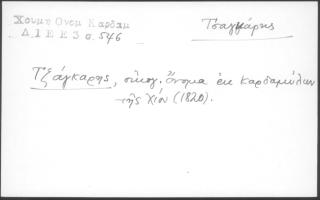 Χουμν Ονομ Καρδαμ
Δ.Ι.Ε.Ε 3 σ. 546
Τσαγκάρης
Τζάγκαρης, οἰκογ. ὄνομα ἐκ Καρδαμύλων
τῆς Χίου (1820).